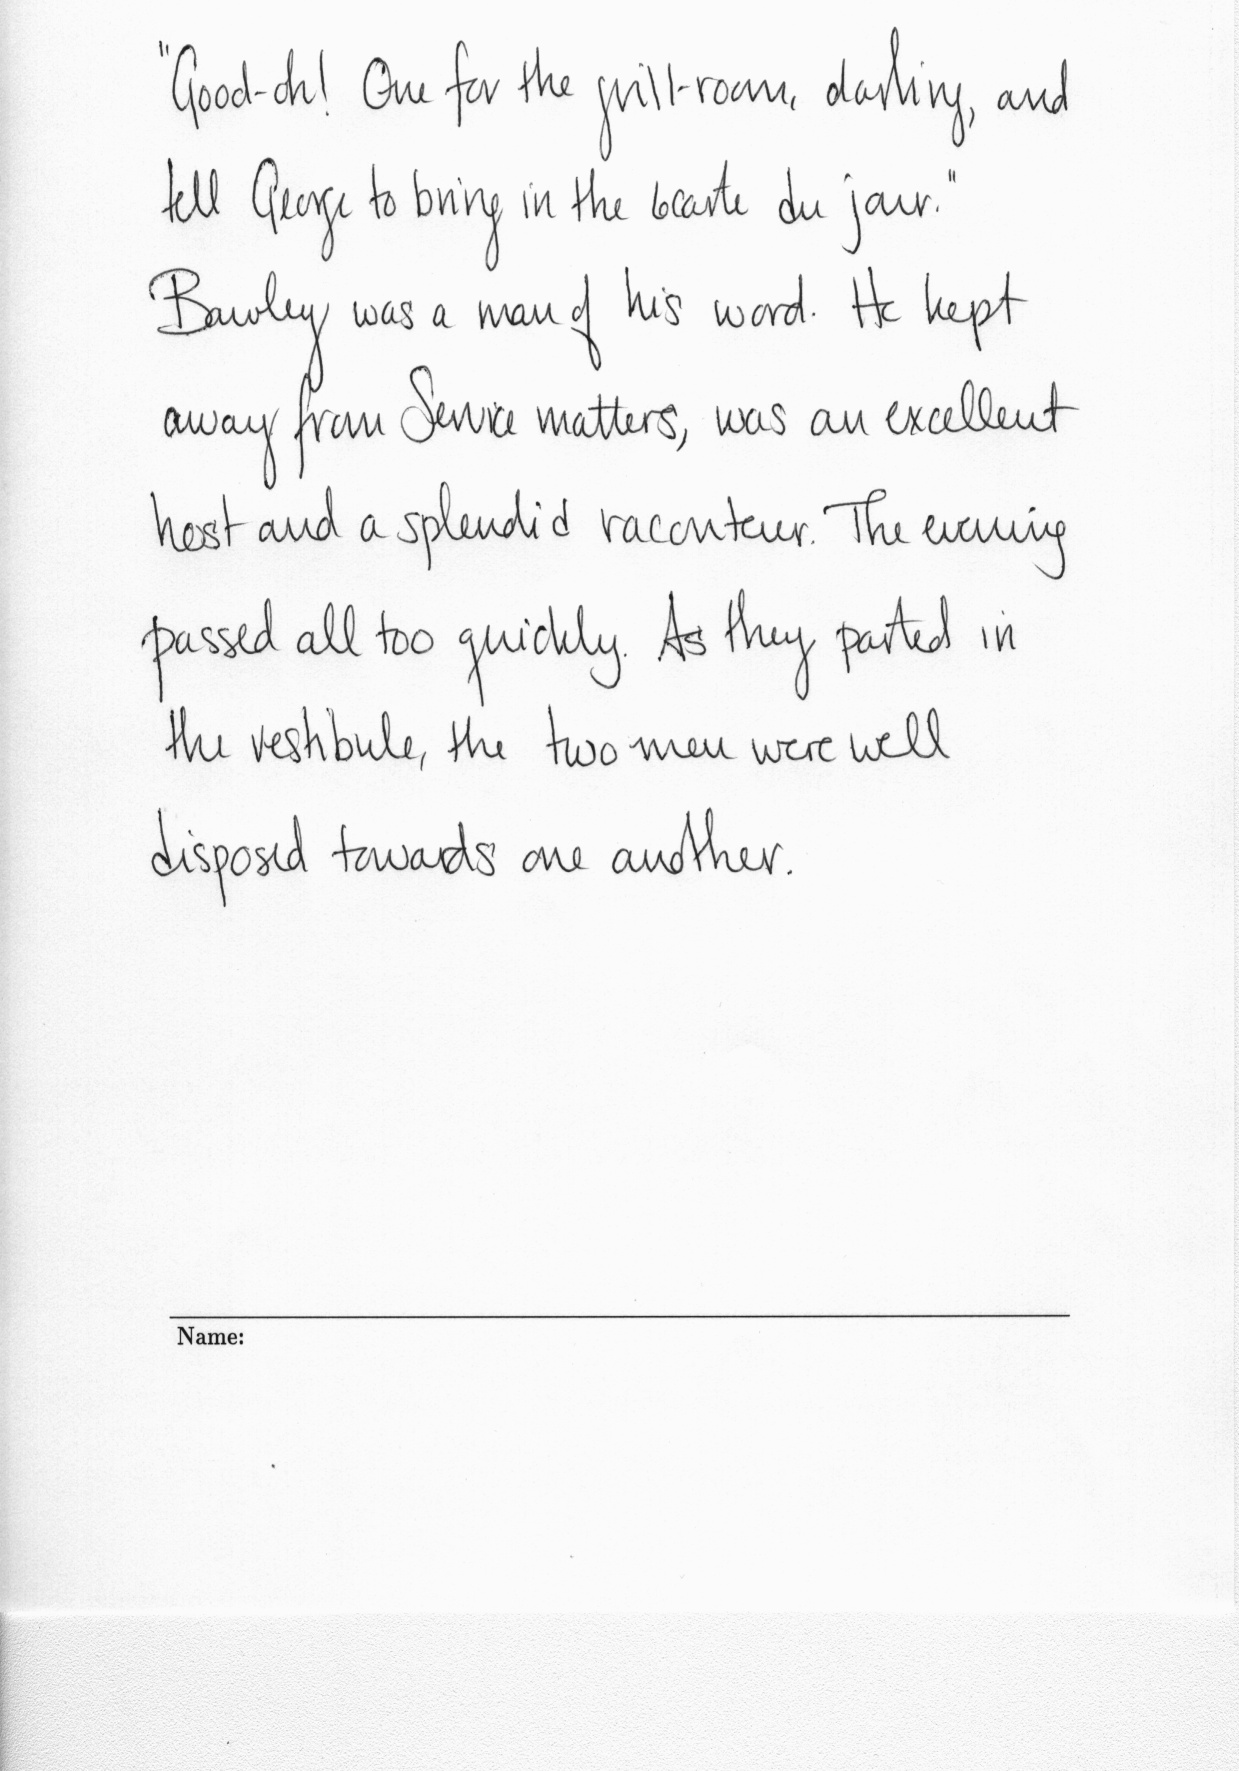 "Good-oh! One for the grill-room, darling, and
tell George to bring in the carte du jour."
Bawley was a man of his word. He kept
away from Service matters, was an excellent
host and a splendid raconteur. The evening
passed all too quickly. As they parted in
the vestibule, the two men were well
disposed towards one another.
Name: